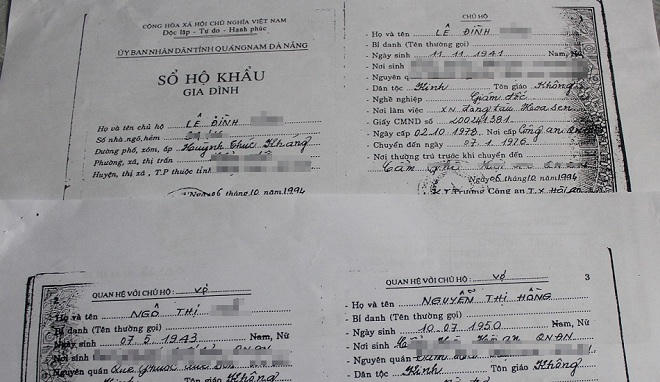 CỘNG HÒA XÃ HỘI CHỦ NGHĨA VIỆT NAM
Độc lập - Tự do - Hạnh phúc
ỦY BAN NHÂN DÂN TỈNH QUẢNG NAM ĐÀ NẴNG
SỔ HỘ KHẨU
GIA ĐÌNH
Họ và tên chủ hộ LÊ ĐÌNH
Số nhà ngõ, hẻm
Đường phố, xóm, ấp Huỳnh Thúc Kháng
Phường, xã, thị trấn
Huyện, thị xã, T.P thuộc tỉnh
Ngày 06 tháng 10 năm 1994
CHỦ HỘ
- Họ và tên LÊ ĐÌNH
- Bí danh (Tên thường gọi)
- Ngày sinh 11.11.1941 Nam, Nữ
- Nơi sinh
- Nguyên quán
- Dân tộc Kinh Tôn giáo Không
- Nghề nghiệp Giám đốc
- Nơi làm việc XN đóng tàu Hoa sen
- Giấy CMND số 200241381
- Ngày cấp 02.10.1978 Nơi cấp Công an QNĐN
- Chuyển đến ngày 07.1.1976
- Nơi thường trú trước khi chuyển đến
Cẩm phô
Ngày 06 tháng 10 năm 1994
K.T Trưởng Công an T.X Hội An
QUAN HỆ VỚI CHỦ HỘ: Vợ
- Họ và tên NGÔ THỊ
Bí danh (Tên thường gọi)
Ngày sinh 07.5.1943 Nam, Nữ
Nơi sinh
Nguyên quán
Kinh Không
QUAN HỆ VỚI CHỦ HỘ: Vợ
3
- Họ và tên NGUYỄN THỊ HỒNG
- Bí danh (Tên thường gọi)
- Ngày sinh 10.07.1950 Nam, Nữ
- Nơi sinh QNĐN
- Nguyên quán
- Dân tộc Kinh Tôn giáo Không